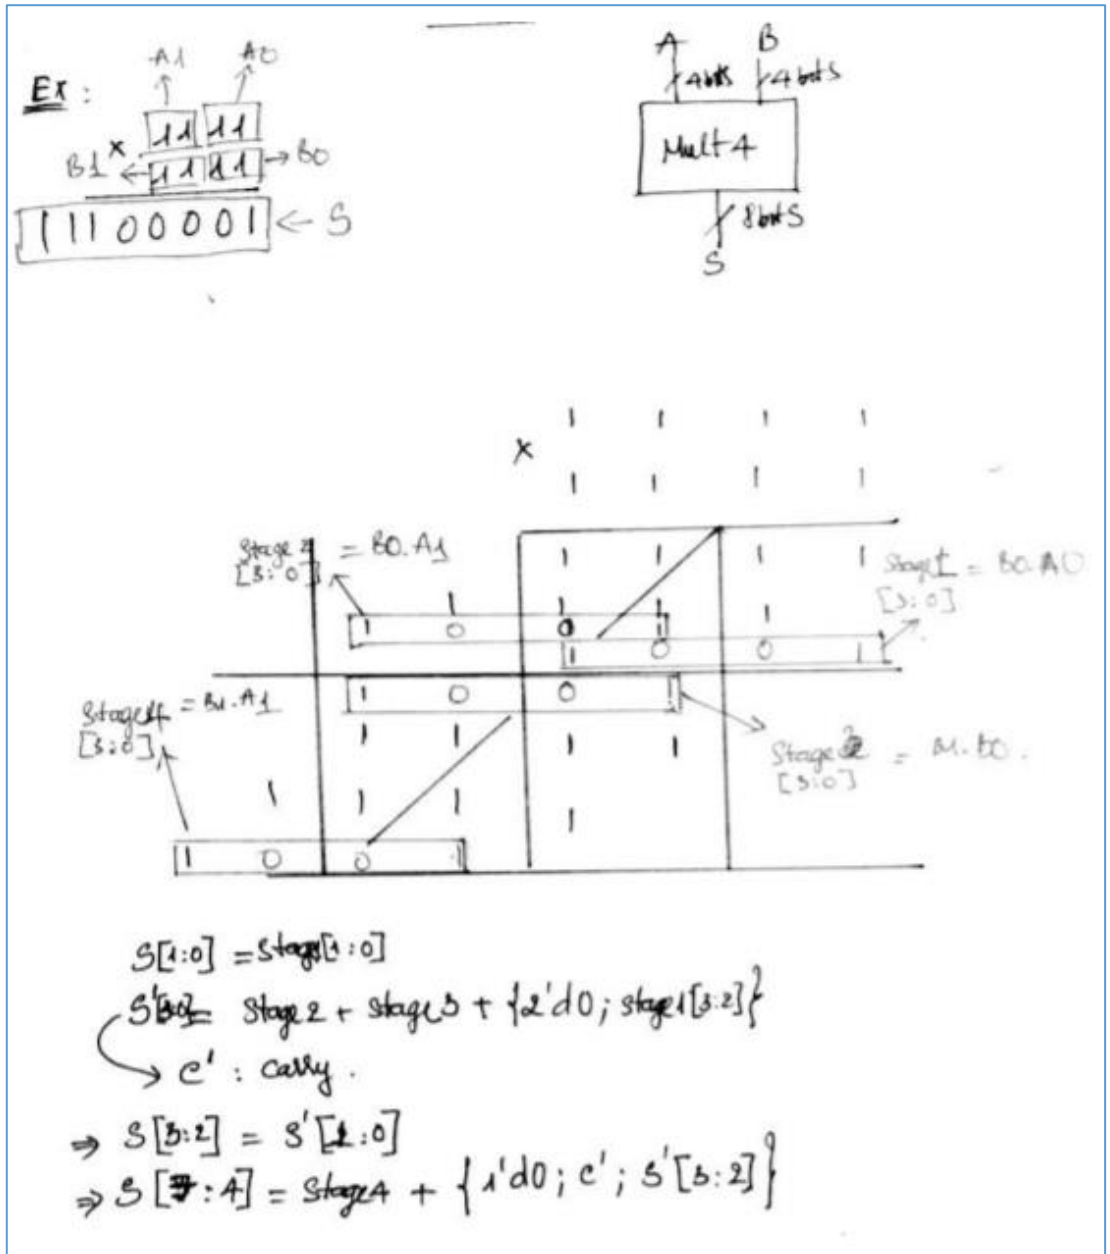 Ex :
A1 A0
11 11
×
B1 11 11 B0
11100001 ← S
A B
4 bits 4 bits
Mult 4
8 bits
S
1 1 1 1
×
1 1 1 1
Stage = B0.A1
[3:0]
1 1 1 1
Stage1 = B0.A0
[3:0]
1 1 1
1 0 0 1
1 0 0 1
Stage4 = B1.A1
[3:0]
1 0 0 1
Stage = .
[3:0]
1 1 1 1
1 1 1 1
1 0 0 1
S[1:0] = Stage[1:0]
S' = Stage2 + Stage3 + {2'd0; Stage1[3:2]}
→ C' : Carry .
⇒ S[3:2] = S'[1:0]
⇒ S[7:4] = Stage4 + {1'd0; C'; S'[3:2]}